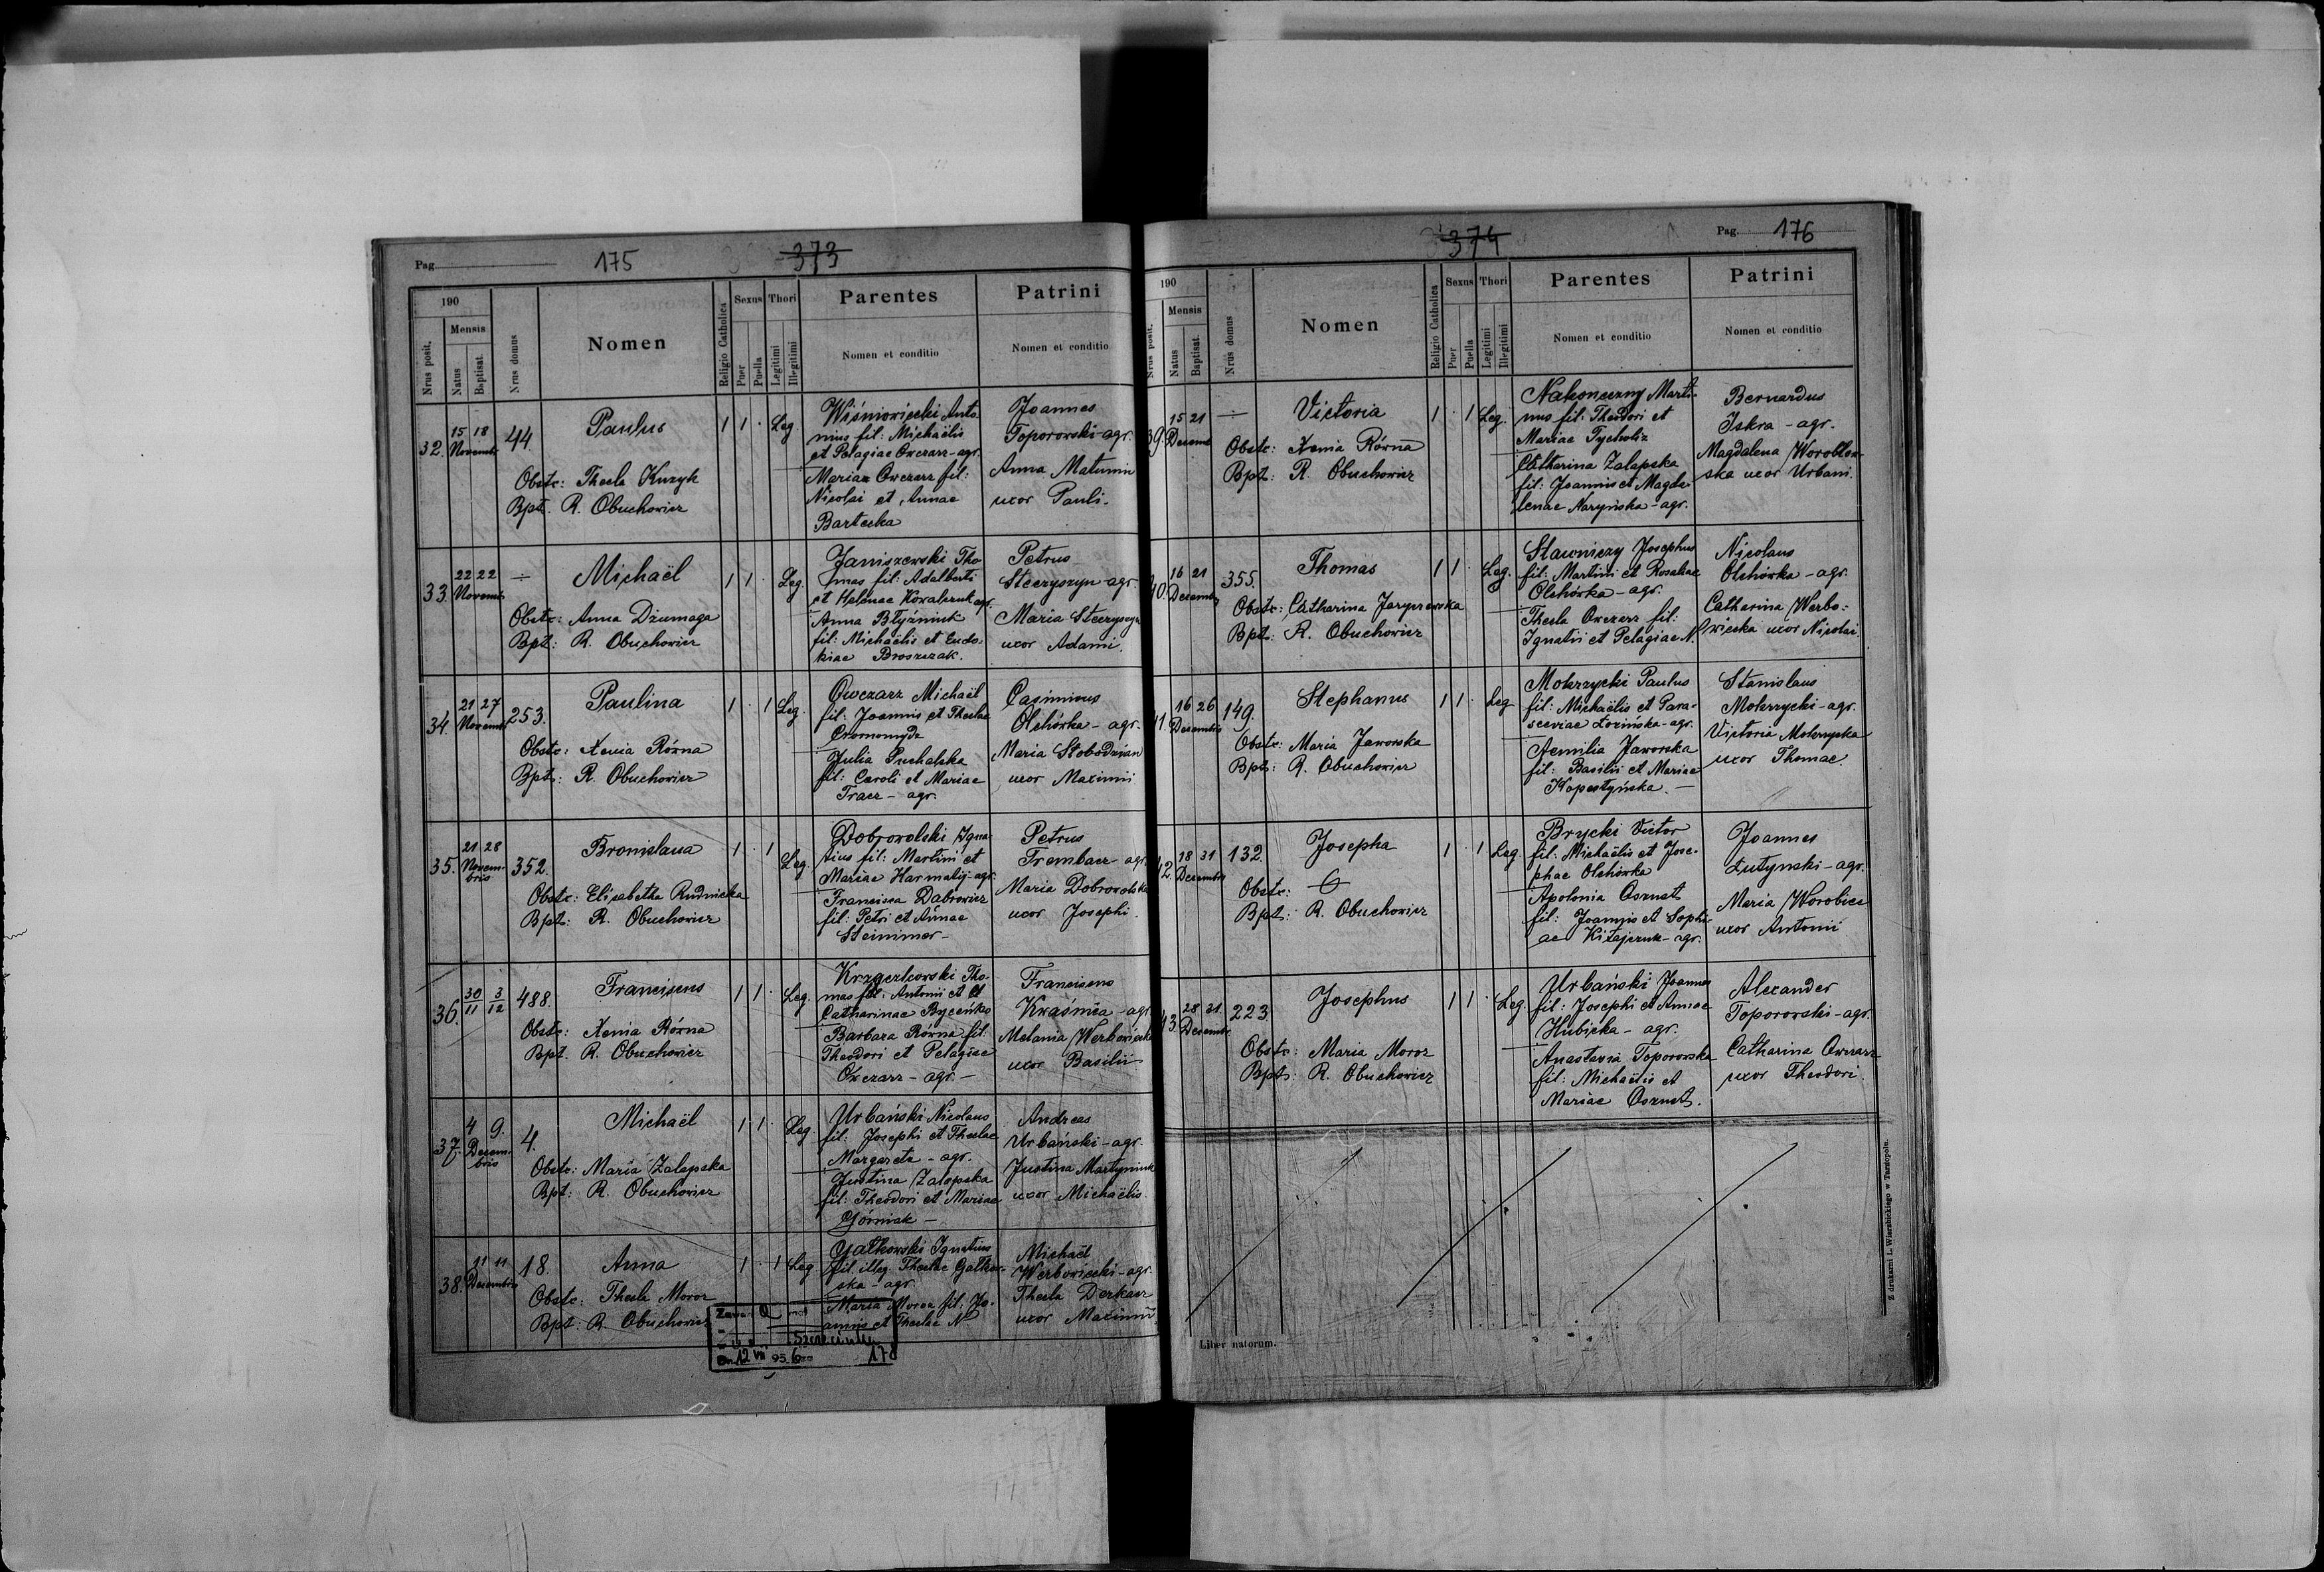 Pag. 175 373
190
Nrus posit.
Mensis
Natus
Baptisat.
Nrus domus
Nomen
Religio Catholica
Sexus
Puer
Puella
Thori
Legitimi
Illegitimi
Parentes
Nomen et conditio
Patrini
Nomen et conditio
32. 15 18 Novemb. 44.
Paulus
1 1 · Leg.
Obstr: Thecla Kuzyk
Bpt. R. Obuchowicz
Wiśniowiecki Anto
nius fil: Michaëlis
et Pelagiae Owczarz - agr.
Maria Owczarz fil:
Nicolai et Annae
Bartecka
Joannes
Toporowski - agr.
Anna Matunin
uxor Pauli.
33. 22 22 Novemb. ÷
Michaël
1 1 · Leg.
Obstr: Anna Dżumaga
Bpt: R. Obuchowicz
Janiszewski Tho
mas fil: Adalberti
et Helenae Kowalczuk agr.
Anna Błyźniuk
fil: Michaëlis et Eudo-
kiae Broszczak.
Petrus
Steczyszyn - agr.
Maria Steczyszyn
uxor Adami.
34. 21 27 Novemb. 253.
Paulina
1 · 1 Leg.
Obstr: Xenia Rózna
Bpt: R. Obuchowicz
Owczarz Michaël
fil: Joannis et Theclae
Julia Puchalska
fil: Caroli et Mariae
Tracz - agr.
Casimirus
Olchówka - agr.
Maria Słobodzian
uxor Maximi
35. 21 28 Novem-
bris 352.
Bronislaua
1 · 1 Leg.
Obstr: Elisabetha Rudnicka
Bpt: R. Obuchowicz
Dobrowolski Igna
tius fil: Martini et
Mariae Harmatij - agr.
Francisca Dąbrowicz
fil: Petri et Annae
Steinimer -
Petrus
Trembacz - agr.
Maria Dobrowolska
uxor Josephi.
36. 30/11 3/12 488.
Franciscus
1 1 · Leg.
Obstr: Xenia Rózna
Bpt. R. Obuchowicz
Krzaczkowski Tho-
mas fil: Antonii et
Catharinae
Barbara Rózna fil:
Theodori et Pelagiae
Owczarz - agr. -
Franciscus
Kraśnica - agr.
Melania Werbowiecka
uxor Basilii
37. 4 9. Decem-
bris 4.
Michaël
1 1 · Leg.
Obstr: Maria Zalepska
Bpt: R. Obuchowicz
Urbański Nicolaus
fil: Josephi et Theclae
Margareta - agr.
Justina Zalepska
fil: Theodori et Mariae
Górniak -
Andreas
Urbański - agr.
Justina Martyniuk
uxor Michaëlis
38. 11 11 Decembris 18.
Anna
1 · 1 Leg.
Obstr: Thecla Moroz
Bpt: R. Obuchowicz
Gatkowski Ignatius
fil. illeg. Theclae Gatkow-
ska - agr.
Maria Moroz fil: Jo-
annis et Theclae N
Michaël
Werbowiecki - agr.
Thecla Derkacz
uxor Maximi
12 VII 95 6
178
374 Pag. 176
190
Nrus posit.
Mensis
Natus
Baptisat.
Nrus domus
Nomen
Religio Catholica
Sexus
Puer
Puella
Thori
Legitimi
Illegitimi
Parentes
Nomen et conditio
Patrini
Nomen et conditio
39. 15 21 Decemb. ÷
Victoria
1 · 1 Leg.
Obstr: Xenia Rózna
Bpt: R. Obuchowicz
Nakoneczny Marti-
nus fil: Theodori et
Mariae Tycholiz
Catharina Zalapska
fil: Joannis et Magda-
lenae Naryńska - agr.
Bernardus
Iskra - agr.
Magdalena Woroblew-
ska uxor Urbani.
40. 16 21 Decembr. 355.
Thomas
1 1 · Leg.
Obstr: Catharina Jaryczewska
Bpt: R. Obuchowicz
Sławniczy Josephus
fil: Martini et Rosaliae
Olchówka - agr.
Thecla Owczarz fil:
Ignatii et Pelagiae N.
Nicolaus
Olchówka - agr.
Catharina Werbo-
wiecka uxor Nicolai
41. 16 26 Decembris 149.
Stephanus
1 1 · Leg.
Obstr: Maria Jaworska
Bpt: R. Obuchowicz
Mokrzycki Paulus
fil: Michaëlis et Para-
sceviae Łozińska - agr.
Aemilia Jaworska
fil: Basilii et Mariae
Kopestyńska. -
Stanislaus
Mokrzycki - agr.
Victoria Mokrzycka
uxor Thomae.
42. 18 31 Decembris 132.
Josepha
1 · 1 Leg.
Obstr:
Bpt: R. Obuchowicz
Brycki Victor
fil: Michaëlis et Jose-
phae Olchówka
Apolonia Osznet
fil: Joannis et Sophi-
ae Kitajczuk - agr.
Joannes
Łutynski - agr.
Maria Worobiec
uxor Antonii
43. 28 31. Decembr. 223.
Josephus
1 1 · Leg.
Obstr: Maria Moroz
Bpt: R. Obuchowicz
Urbański Joannes
fil: Josephi et Annae
Hubicka - agr.
Anastasia Toporowska
fil: Michaëlis et
Mariae Osznet.
Alexander
Toporowski - agr.
Catharina Owczarz
uxor Theodori.
Liber natorum.
Z drukarni L. Wierzbickiego w Tarnopolu.